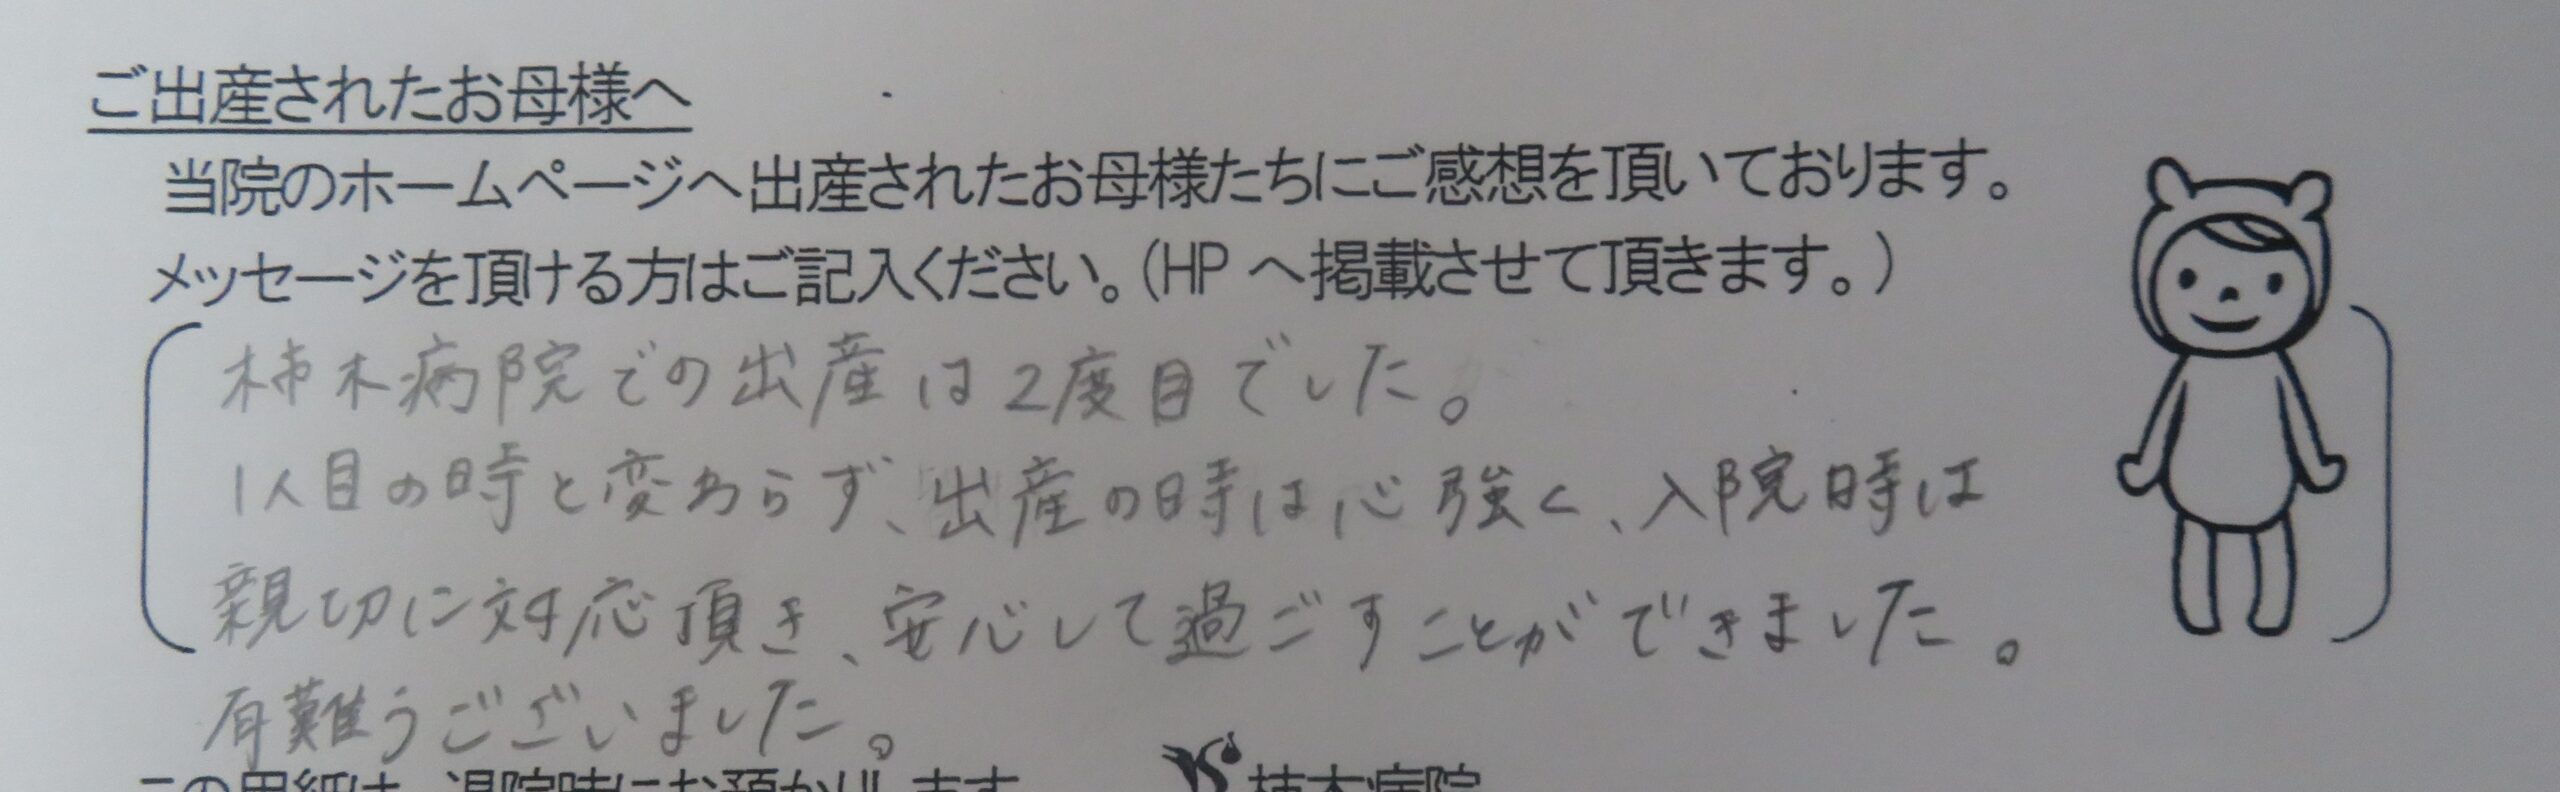 ご出産されたお母様へ
当院のホームページへ出産されたお母様たちにご感想を頂いております。
メッセージを頂ける方はご記入ください。（HPへ掲載させて頂きます。）
柿木病院での出産は2度目でした。
1人目の時と変わらず、出産の時は心強く、入院時は
親切に対応頂き、安心して過ごすことができました。
有難うございました。
この用紙は、退院時にお預かりします
柿木病院